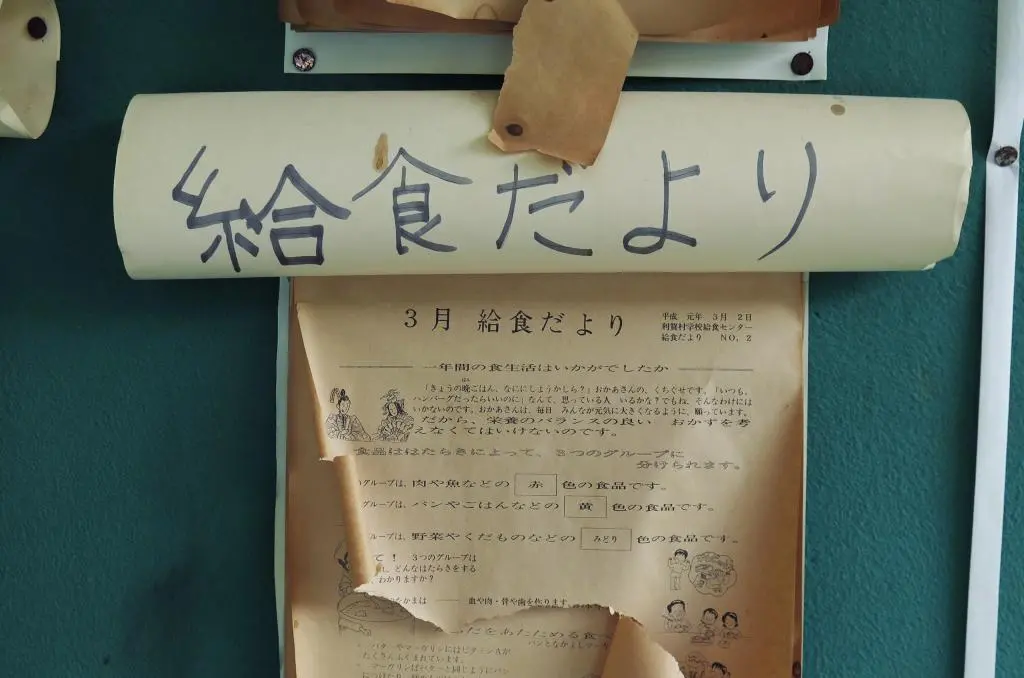 給食だより
3月 給食だより
平成 元年 3月 2日
利賀村学校給食センター
給食だより NO, 2
一年間の食生活はいかがでしたか
「きょうの晩ごはん、なににしようかしら?」おかあさんの、くちぐせです。「いつも、
ハンバーグだったらいいのに」なんて、思っている人 いるかな?でもね、そんなわけには
いかないのです。おかあさんは、毎日 みんなが元気に大きくなるように、願っています。
だから、栄養のバランスの良い おかずを考
えなくてはいけないのです。
食品ははたらきによって、3つのグループに
分けられます。
グループは、肉や魚などの 赤 色の食品です。
グループは、パンやごはんなどの 黄 色の食品です。
ループは、野菜やくだものなどの みどり 色の食品です。
て! 3つのグループは
どんなはたらきをする
わかりますか?
なかまは ―― 血や肉・骨や歯を作ります
だをあたためる食べ
パンとなかよしマーガ
バターやマーガリンにはビタミンAが
たくさんふくまれています。
マーガリンはバターと同じようにパン